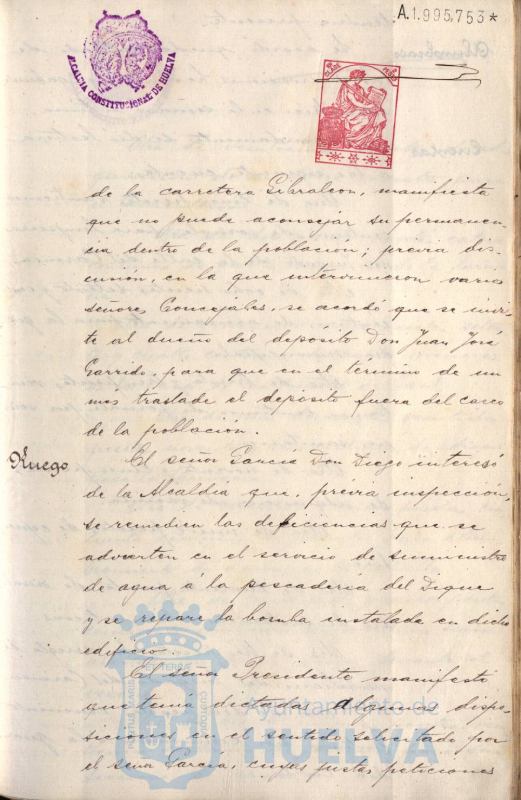 A.1.995,753*
ALCALDIA CONSTITUCIONAL DE HUELVA
de la carretera Gibraleon, manifiesta
que no puede aconsejar su permanen-
cia dentro de la población; previa dis-
cusión, en la que intervinieron varios
señores Concejales, se acordó que se invi-
te al dueño del depósito Don Juan José
Garrido, para que en el término de un
mes traslade el depósito fuera del casco
de la población.
Ruego.
El señor García Don Diego interesó
de la Alcaldia que, previa inspección,
se remedien las deficiencias que se
advierten en el servicio de suministro
de agua á la pescadería del Dique
y se repare la bomba instalada en dicho
edificio.
El señor Presidente manifestó
que tenía dictadas algunas dispo-
siciones en el sentido solicitado por
el señor García, cuyas justas peticiones
Ayuntamiento de
HUELVA